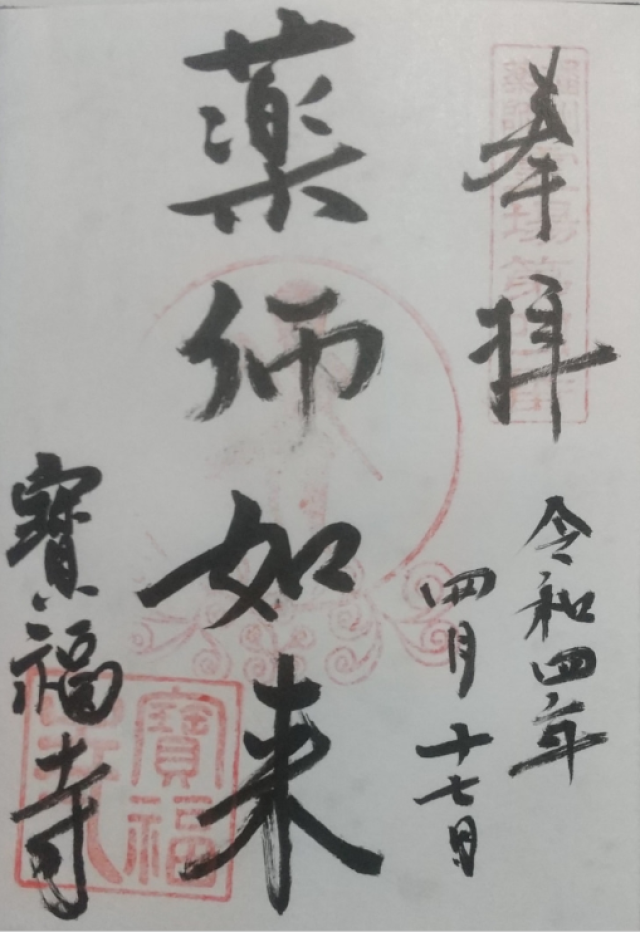 奉拝
令和四年
四月十七日
薬師如来
寳福寺
寳福